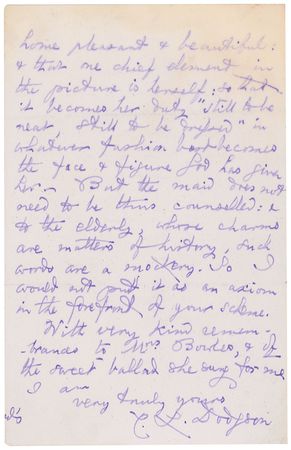 home pleasant & beautiful:
& that one chief element in
the picture is herself, so that
it becomes her duty "still to be
neat, still to be dressed" in
whatever fashion best becomes
the face & figure God has given
her. But the maid does not
need to be thus counselled: &
to the elderly, whose charms
are matters of history, such
words are a mockery. So I
would not put it as an axiom
in the forefront of your scheme.
With very kind remem-
-brances to Mrs Bowles, & of
the sweet ballad she sung for me
I am
very truly yours
C. L. Dodgson